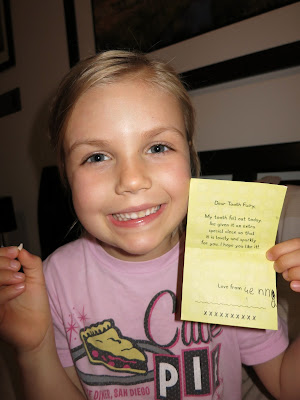 Dear Tooth Fairy,
My tooth fell out today
Ive given it an extra
special clean so that
it is lovely and sparkly
for you. I hope you like it!
Love from
XXXXXXXXXX
PI
DINER, SAN DIEGO